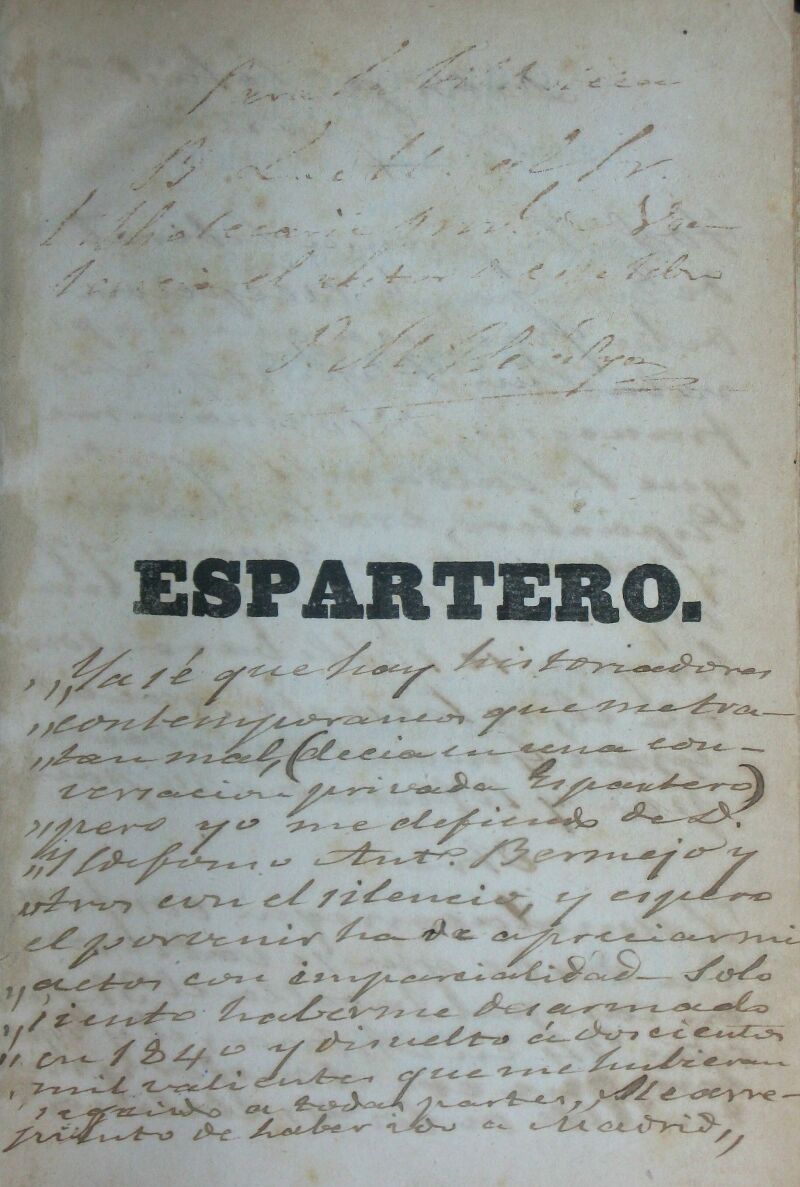 Para la biblioteca
B. L. M. al Sr.
bibliotecario
el autor de este libro
ESPARTERO.
„Ya sé que hay historiadores
„contemporaneos que me tra-
„tan mal, (decia en una con-
versacion privada Espartero)
„pero yo me defiendo de D.
„Yldefonso Ant.º Bermejo y
otros con el silencio, y espero
el porvenir ha de apreciar mi
„actos con imparcialidad. Solo
„siento haberme desarmado
„en 1840 y disuelto á doscientos
mil valientes que me hubieran
seguido a todas partes, Me arre-
piento de haber ido a Madrid„